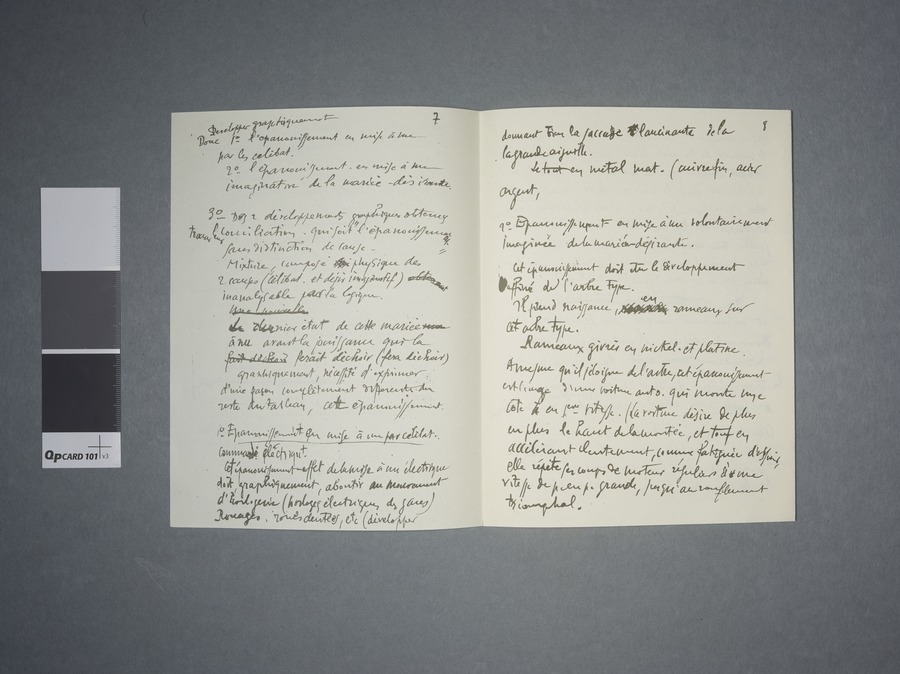 7
Developper graphiquement
Donc 1º l'épanouissement en mise à nue
par les célibat.
2º l'épanouissement en mise à nue
imaginative de la mariée-désirante.
3º Des 2 développements graphiques obtenus
trouver leur conciliation. qui soit l'"épanouissement"
sans distinction de cause.
Mixture, composé physique des
2 causes (célibat. et désir imaginatif)
inanalysable par la logique.
Le dernier état de cette mariée
à nue avant la jouissance qui la
ferait déchoir (fera déchoir)
graphiquement, nécessité d'exprimer
d'une façon complètement différente du
reste du tableau, cet épanouissement.
1º Epanouissement en mise à nue par célibat.
commande électrique.
Cet épanouissement-effet de la mise à nu électrique
doit graphiquement, aboutir au mouvement
d'horlogerie (horloges électriques des gares)
Rouages, roues dentées, etc (développer
8
donnant bien la saccade lancinante de la
la grande aiguille.
Le tout en métal mat. (cuivre fin, acier
argent,
2º Epanouissement en mise à nu volontairement
imaginée de la mariée-désirante.
Cet épanouissement doit être le développement
affiné de l'arbre type.
Il prend naissance, en rameaux sur
cet arbre type.
Rameaux givrés en nickel et platine.
A mesure qu'il s'éloigne de l'arbre, cet épanouissement
est l'image d'une voiture auto. qui monte une
côte en 1ère vitesse. (La voiture désire de plus
en plus le haut de la montée, et tout en
accélérant lentement, comme fatiguée d'espoir,
elle répète ses coups de moteur réguliers à une
vitesse de p. en p. grande, jusqu'au ronflement
triomphal.
QpCARD 101 v3